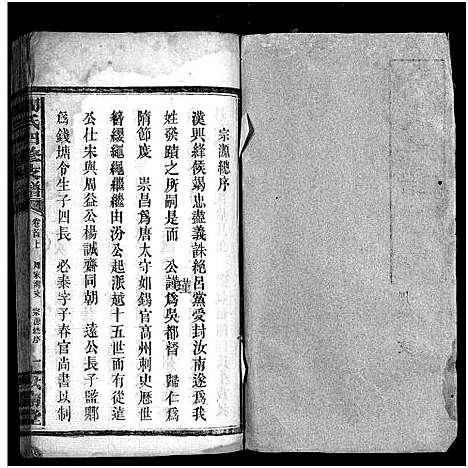 宗源總序
漢興絳侯竭忠盡義誅絕呂黨受封汝南遂爲我
姓發蹟之所嗣是而 公謹爲吳都督 歸仁爲
隋節度 崇昌爲唐太守如錫官高州刺史歷世
簪纓繩繩繼繼由汾公起派越十五世而有從遠
公仕宋與周益公楊誠齋同朝 遠公長子監鄴
爲錢塘令生子四長 必泰字子春官尚書以制
氏四修支譜
卷首上
周家灣支 宗源總序
一
堂